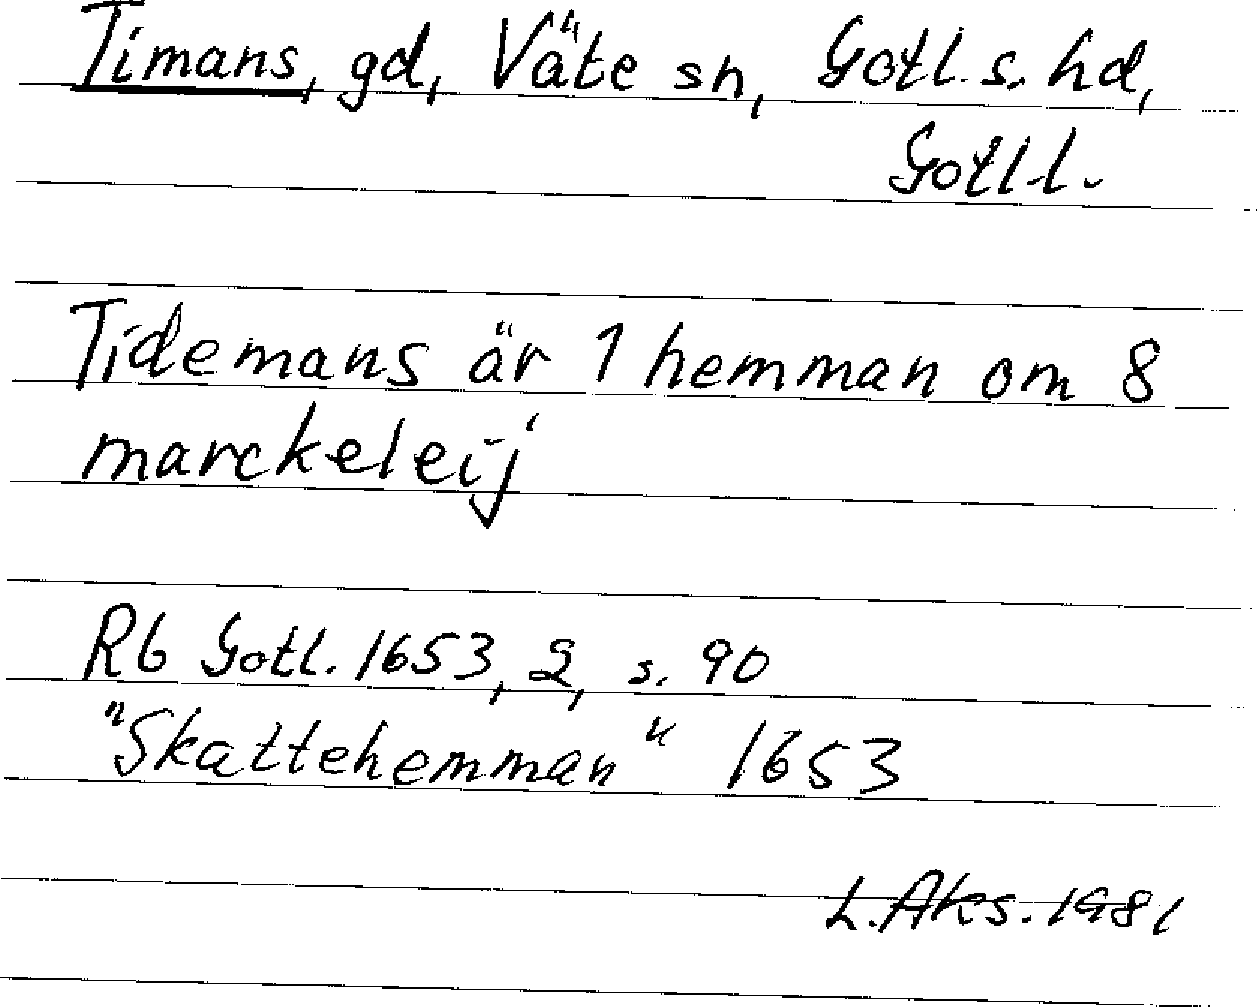 Timans, gd, Väte sn, Gotl. s. hd,
Gotl. l.
Tidemans är 1 hemman om 8
marckeleij
Rb Gotl. 1653, 2, s. 90
"Skattehemman" 1653
L. Aks. 1981